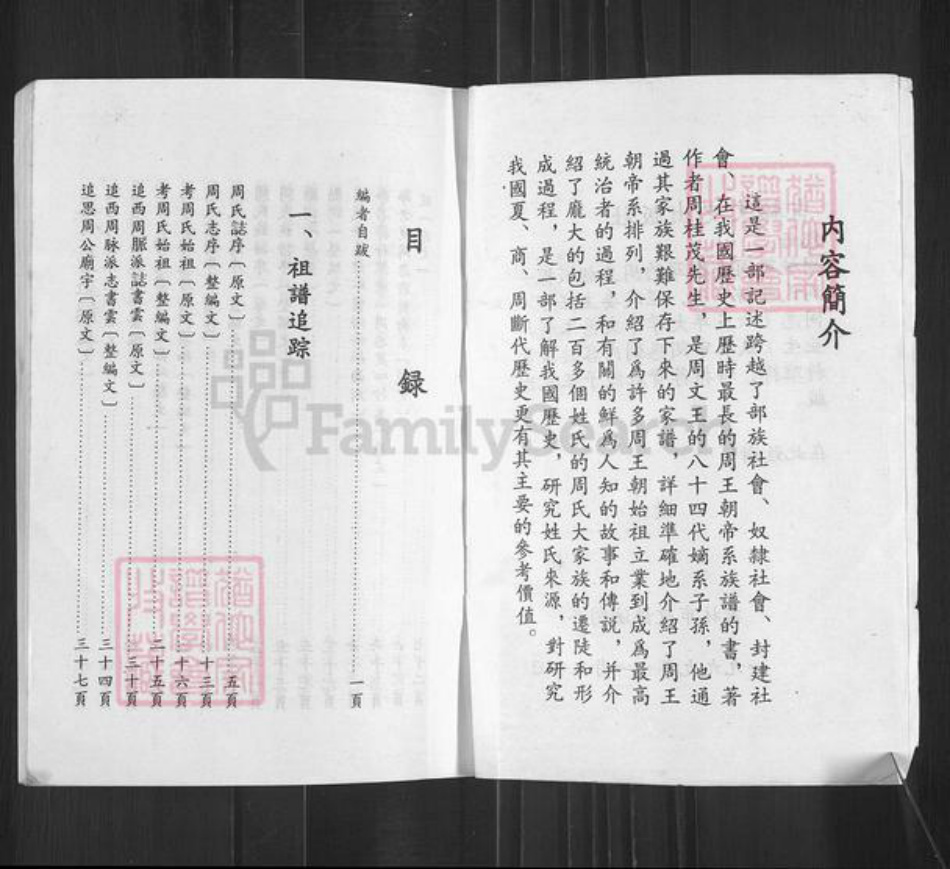 内容簡介
這是一部記述跨越了部族社會、奴隸社會、封建社
會、在我國歷史上歷時最長的周王朝帝系族譜的書，著
作者周桂茂先生，是周文王的八十四代嫡系子孫，他通
過其家族艱難保存下來的家譜，詳細準確地介紹了周王
朝帝系排列，介紹了爲許多周王朝始祖立業到成爲最高
統治者的過程，和有關的鮮爲人知的故事和傳説，并介
紹了龐大的包括二百多個姓氏的周氏大家族的遷陡和形
成過程，是一部了解我國歷史，研究姓氏來源，對研究
我國夏、商、周斷代歷史更有其主要的參考價值。
目録
編者自跋…………一頁
一、祖譜追踪
周氏誌序〔原文〕…………五頁
周氏志序〔整編文〕…………十三頁
考周氏始祖〔原文〕…………十六頁
考周氏始祖〔整編文〕…………二十五頁
追西周脈派誌書雲〔原文〕…………三十頁
追西周脉派志書雲〔整編文〕…………三十四頁
追思周公廟宇〔原文〕…………三十七頁
FamilySearch